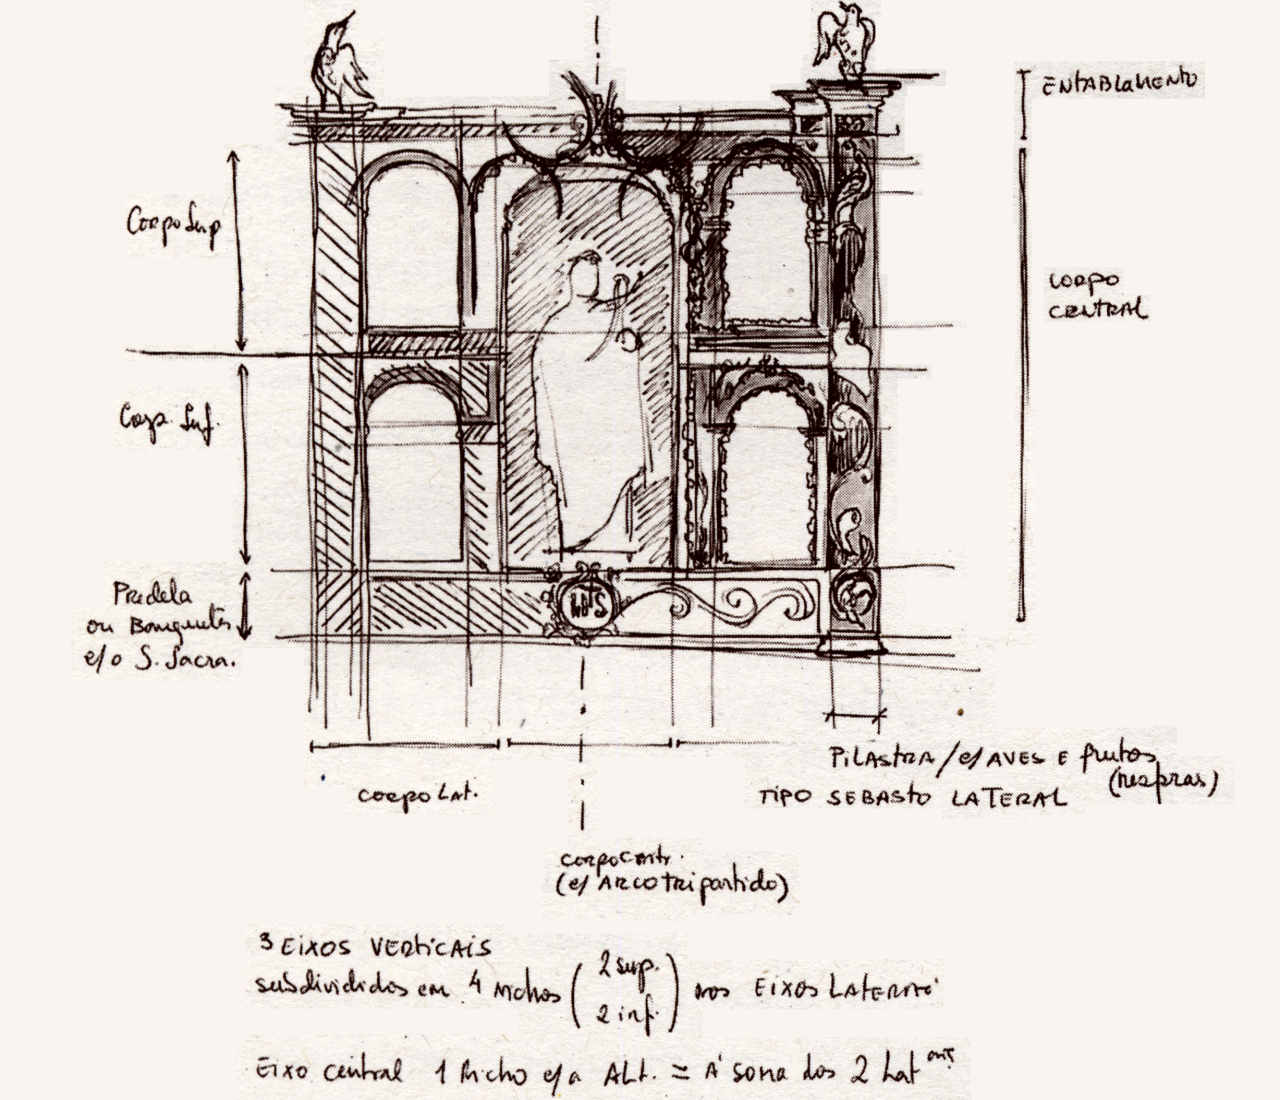 ENTABLAMENTO
Corpo Sup
CORPO
CENTRAL
Corp. Inf.
IHS
Predela
ou Banquetes
c/ o S. Sacra.
PILASTRA / c/ AVES E frutos
(nesperas)
TIPO SEBASTO LATERAL
CORPO LAT.
CORPO Centr.
(c/ ARCO tripartido)
3 EIXOS VERTICAIS
subdivididos em 4 nichos (2 sup. 2 inf.) nos EIXOS LATERAI
EIXO central 1 Nicho c/ a ALT. = À soma dos 2 Lat